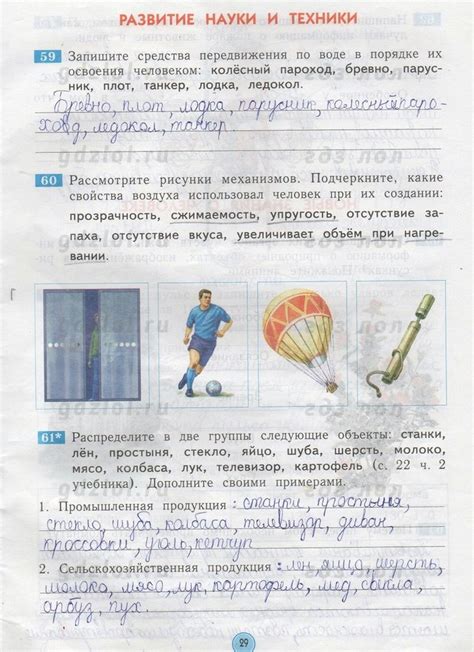 РАЗВИТИЕ НАУКИ И ТЕХНИКИ
59 Запишите средства передвижения по воде в порядке их
освоения человеком: колёсный пароход, бревно, парус-
ник, плот, танкер, лодка, ледокол.
Бревно, плот, лодка, парусник, колесный паро-
ход, ледокол, танкер.
gdzlol.ru
гдз лол
60 Рассмотрите рисунки механизмов. Подчеркните, какие
свойства воздуха использовал человек при их создании:
прозрачность, сжимаемость, упругость, отсутствие за-
паха, отсутствие вкуса, увеличивает объём при нагре-
вании.
gdzlol.ru
гдз лол
gdzlol.ru
гдз лол
61* Распределите в две группы следующие объекты: станки,
лён, простыня, стекло, яйцо, шуба, шерсть, молоко,
мясо, колбаса, лук, телевизор, картофель (с. 22 ч. 2
учебника). Дополните своими примерами.
1. Промышленная продукция : станки, простыня,
стекло, шуба, колбаса, телевизор, диван,
кроссовки, уголь, кетчуп
2. Сельскохозяйственная продукция : лен, яйцо, шерсть,
молоко, мясо, лук, картофель, мед, свекла,
арбуз, пух.
29